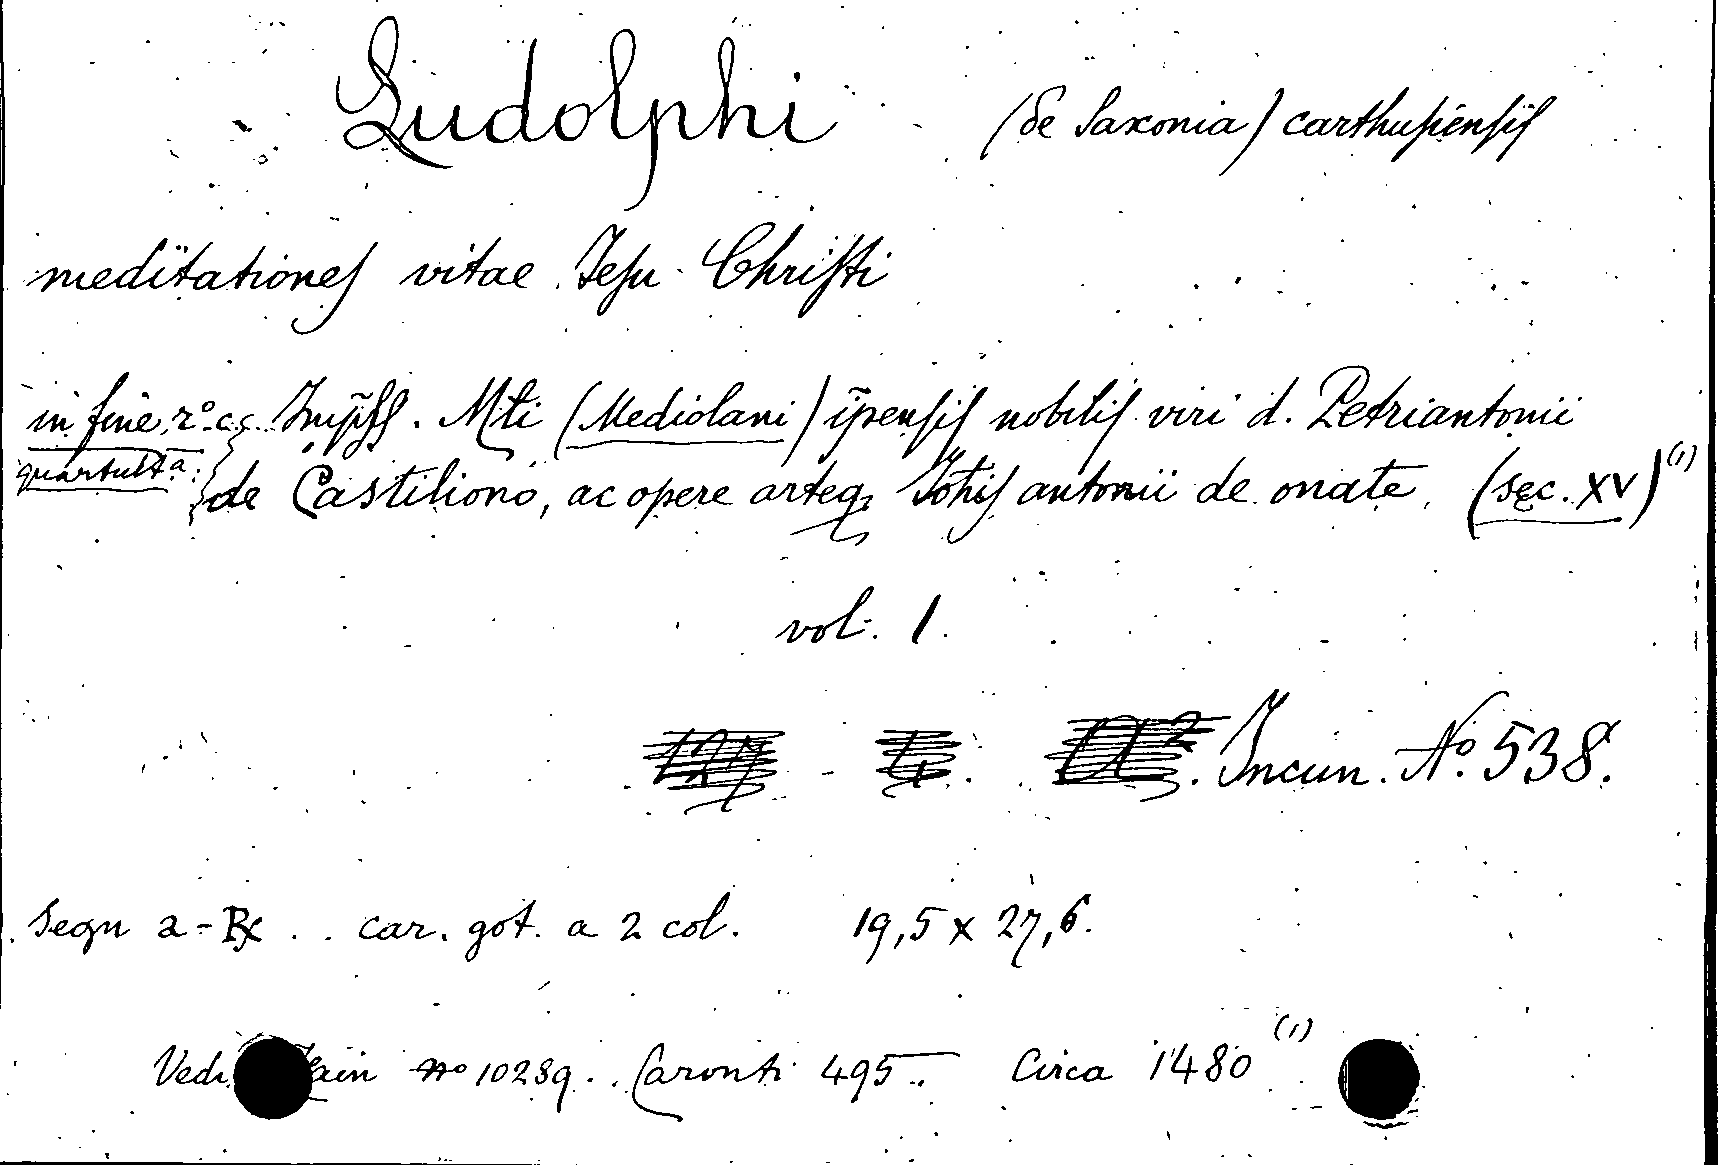 Ludolphi (de Saxonia) carthusiensis
meditationes vitae Jesu Christi
in fine, r.º c. Mli (Mediolani) ip̄ensis nobilis viri d. Petriantonii
quartult.ª de Castiliono, ac opere arteq. Joh̄is antonii de onate. (sec. XV) (1)
vol. 1.
Incun. Nº. 538.
Segn a - car. got. a 2 col. 19,5 x 27,6.
Nº 10289. Caronti 495. Circa 1480 (1)